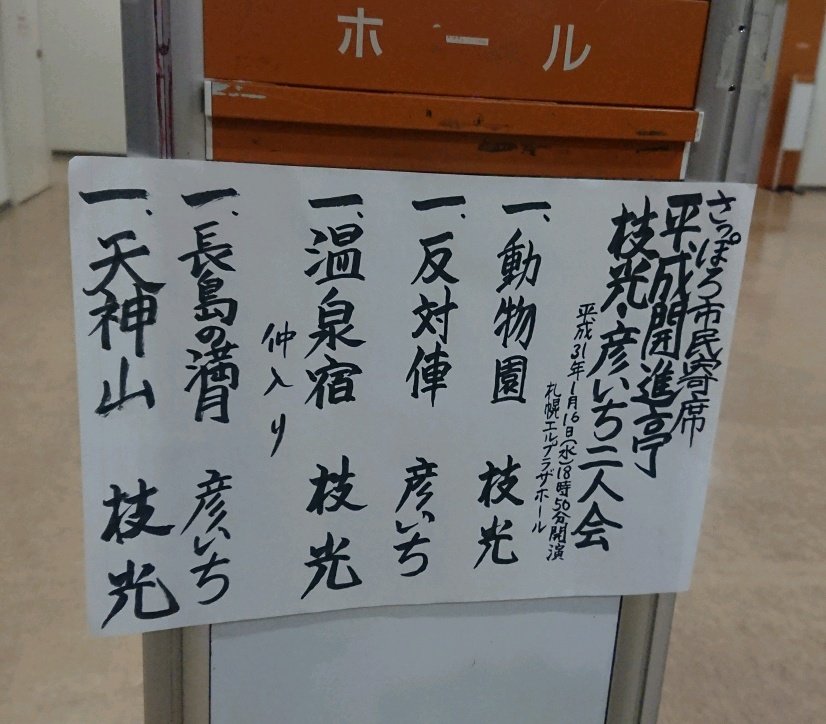 ホール
さっぽろ市民寄席
平成開進亭
枝光・彦いち二人会
平成31年1月16日(水)18時50分開演
札幌エルプラザホール
一、動物園 枝光
一、反対俥 彦いち
一、温泉宿 枝光
仲入り
一、長島の満月 彦いち
一、天神山 枝光